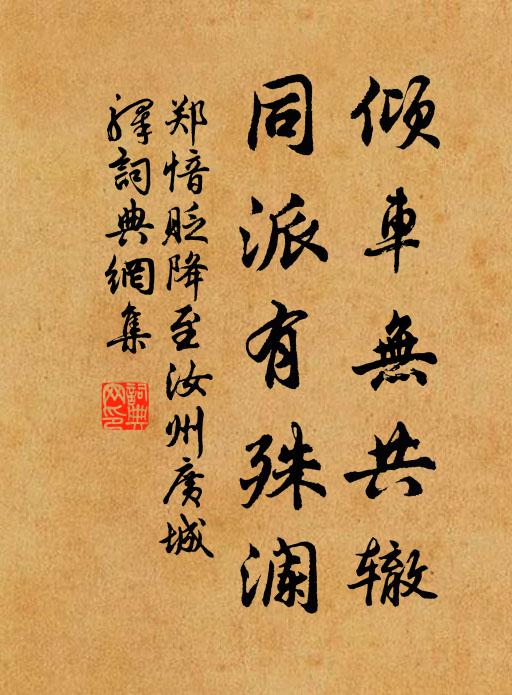 倾車無共辙
同派有殊澜
郑愔貶降至汝州廣城
驛詞典網集
詞典
网印